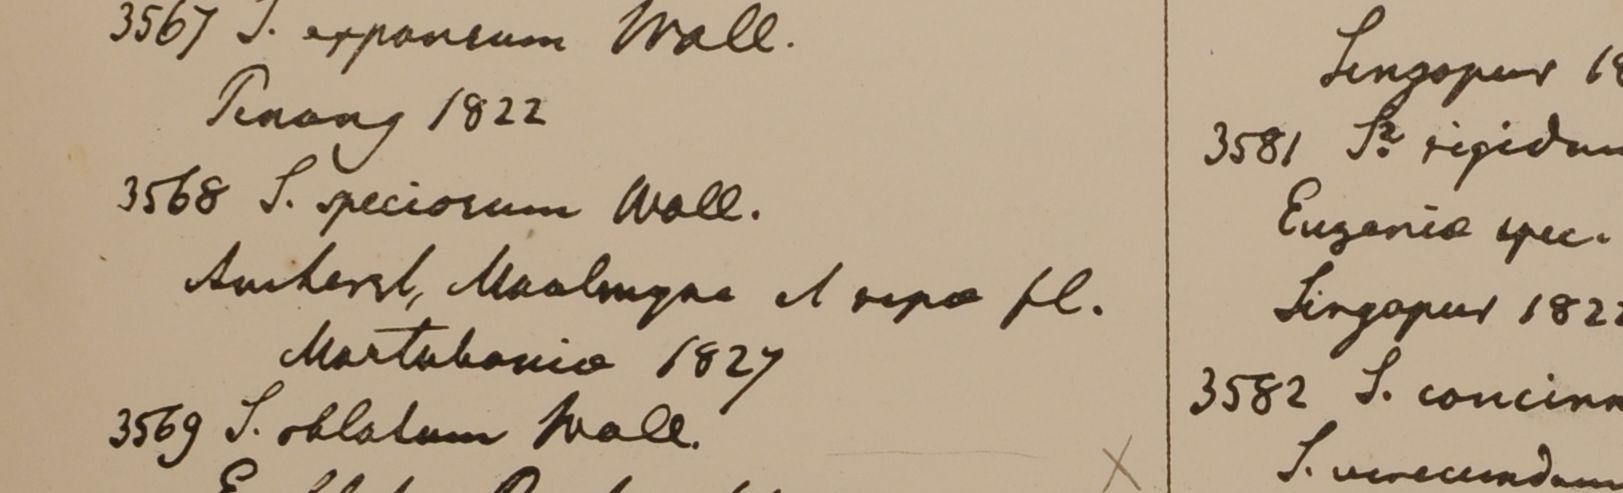 3567 S. expansum Wall.
Penang 1822
3568 S. speciosum Wall.
Amherst, Moalmyne et ripa fl.
Martabania 1827
3569 S. oblatum Wall.
Singapur 18
3581 S? rigidum
Eugenia spec.
Singapur 1822
3582 S. concinn
S. verecundum